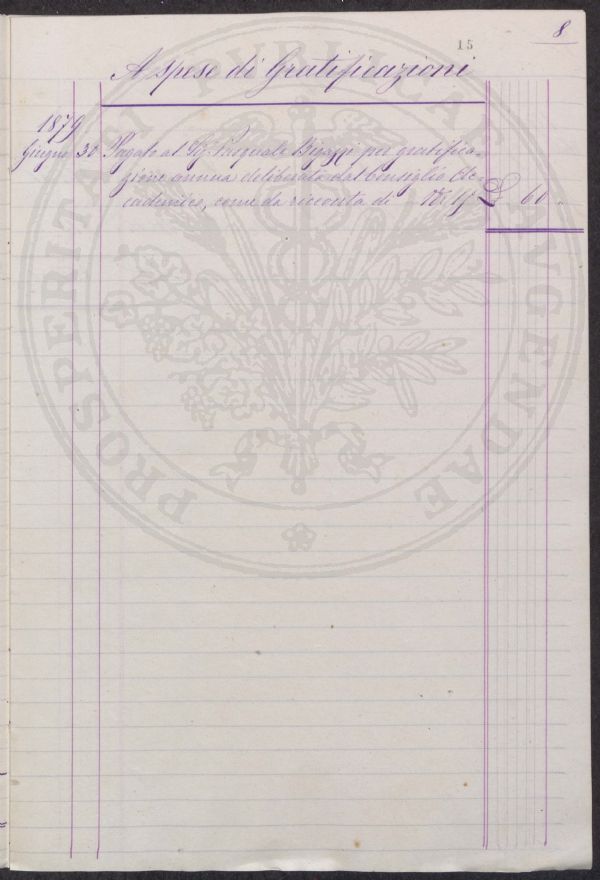 8
15
A spese di Gratificazioni
1879
Giugno 30 Pagato al Sig. Pasquale per gratifica-
zione annua deliberata dal Consiglio Ac-
cademico, come da ricevuta di N. 15 £ 60 "
PROSPERITATI PVBLICAE AVGENDAE